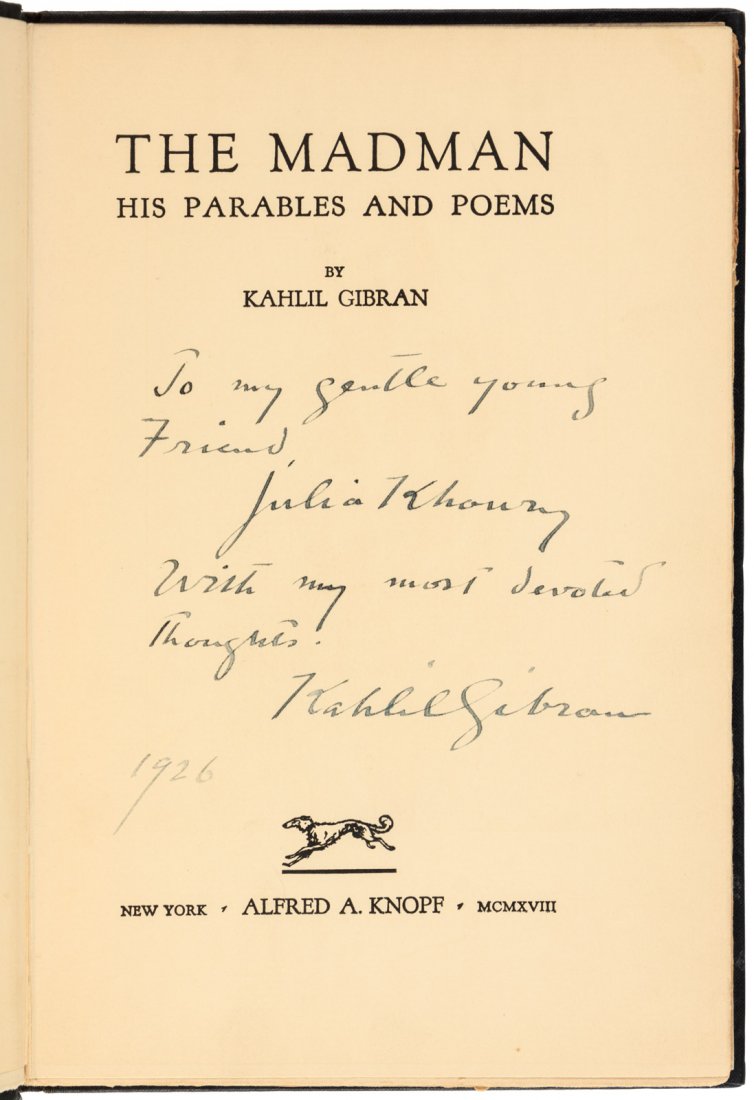 THE MADMAN
HIS PARABLES AND POEMS
BY
KAHLIL GIBRAN
To my gentle young
Friend
Julia Khoury
With my most devoted
thoughts.
Kahlil Gibran
1926
NEW YORK · ALFRED A. KNOPF · MCMXVIII